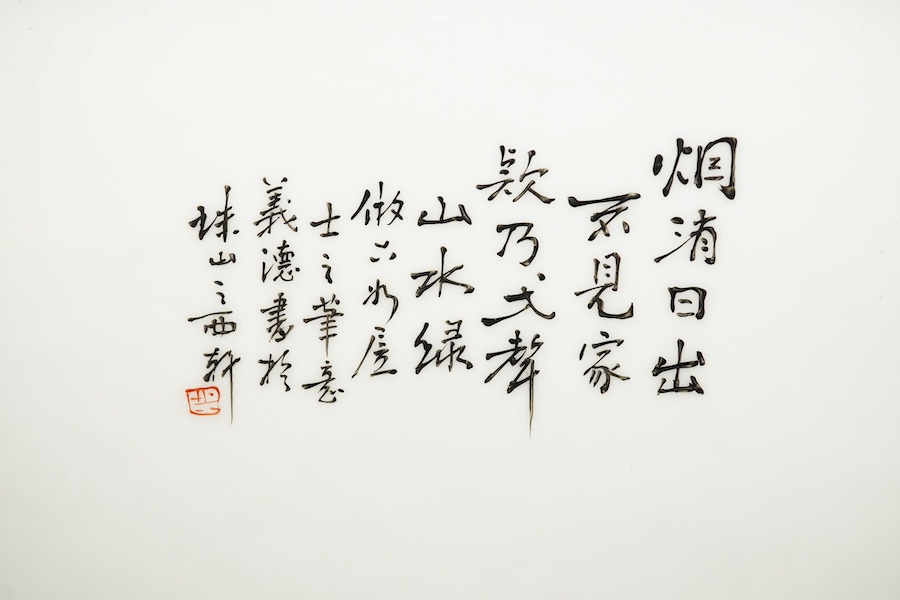 烟消日出
不見家
欸乃弌聲
山水綠
倣六如居
士之筆意
義德書於
珠山之西軒